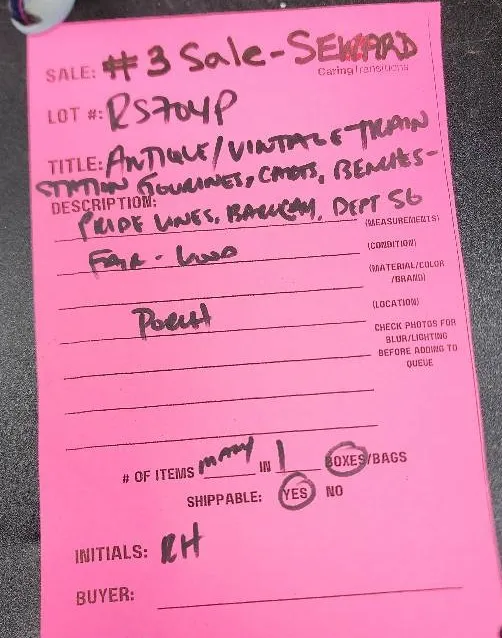 SALE: #3 Sale - SEWARD
CaringTransitions
LOT #: RS704P
TITLE: ANTIQUE/VINTAGE TRAIN
STATION FIGURINES, CARTS, BENCHES-
DESCRIPTION:
PRIDE LINES, BARCLAY, DEPT 56
(MEASUREMENTS)
FAIR -
(CONDITION)
(MATERIAL/COLOR
/BRAND)
PORCH
(LOCATION)
CHECK PHOTOS FOR
BLUR/LIGHTING
BEFORE ADDING TO
QUEUE
# OF ITEMS MANY IN 1 BOXES/BAGS
SHIPPABLE: YES NO
INITIALS: RH
BUYER: